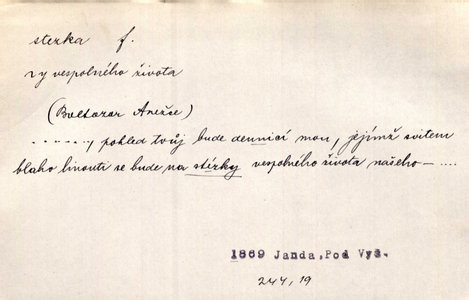 stezka f.
~y vespolného života
(Baltazar Anežce)
. . . . . . , pohled tvůj bude dennicí mou, jejímž svitem
blaho linouti se bude na stézky vespolného života našeho — ....
1869 Janda, Pod Vyš.
244, 19